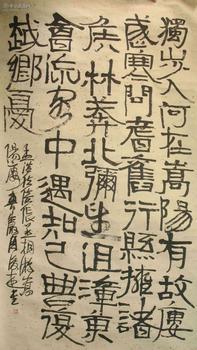 獨步人何在嵩陽有故樓
歲寒問耆舊行縣擁諸
侯林莽北彌望沮漳東
會流客中遇知己無復
越鄉憂
孟浩然陪張丞相登嵩
陽樓